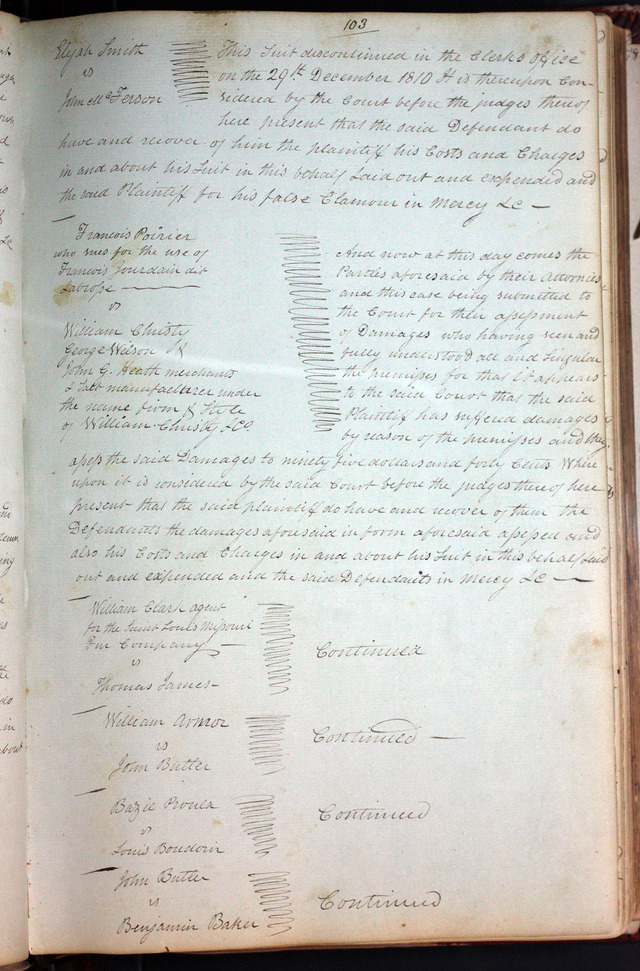 103
Elijah Smith
vs
John McFerson
This Suit discontinued in the Clerks office
on the 29th December 1810 It is thereupon Con-
sidered by the Court before the judges thereof
here present that the said Defendant do
have and recover of him the plaintiff his Costs and Charges
in and about his Suit in this behalf Laid out and expended and
the said Plaintiff for his false Clamour in Mercy &c —
Francois Poirier
who sues for the use of
Francois Jourdain dit
Labrosse
vs
William Christy
George Wilson &
John G. Heath merchants
& Salt manufacturer under
the name firm & Style
of William Christy & Co.
And now at this day comes the
Parties aforesaid by their Attornies
and this case being submitted to
the Court for their assessment
of Damages who having seen and
fully understood all and Singular
the premises for that it appears
to the said Court that the said
Plaintiff has suffered damages
by reason of the premisses and they
assess the said Damages to ninety five dollars and forty Cents Where
upon it is considered by the said Court before the judges thereof here
present that the said plaintiff do have and recover of them the
Defendants the damages aforesaid in form aforesaid assessed and
also his Costs and Charges in and about his Suit in this behalf Laid
out and expended and the said Defendants in Mercy &c —
William Clark agent
for the Saint Louis Missouri
Fur Company
vs
Thomas James
Continued
William Armor
vs
John Butler
Continued —
Bazie Proulx
vs
Louis Boudoin
Continued
John Butler
vs
Benjamin Baker
Continued